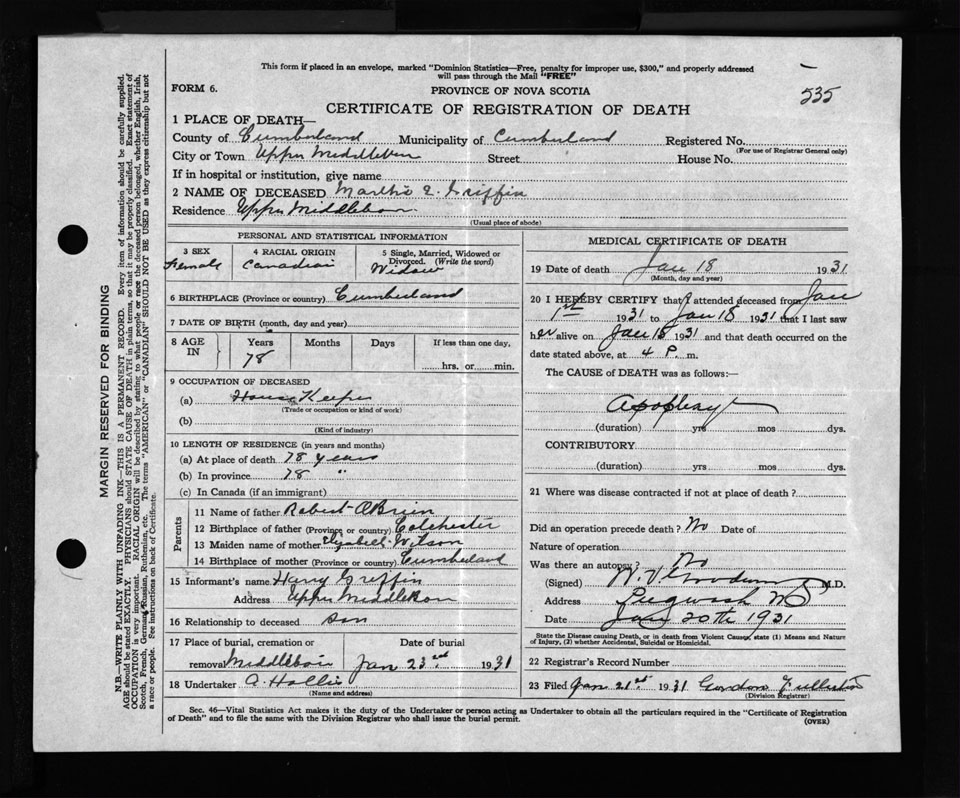 This form if placed in an envelope, marked "Dominion Statistics—Free, penalty for improper use, $300," and properly addressed
will pass through the Mail "FREE"
FORM 6.
PROVINCE OF NOVA SCOTIA
535
CERTIFICATE OF REGISTRATION OF DEATH
1 PLACE OF DEATH—
County of Cumberland Municipality of Cumberland Registered No.
(For use of Registrar General only)
City or Town Upper Middleboro Street House No.
If in hospital or institution, give name
2 NAME OF DECEASED E. Griffin
Residence Upper Middleboro
(Usual place of abode)
PERSONAL AND STATISTICAL INFORMATION
3 SEX Female
4 RACIAL ORIGIN Canadian
5 Single, Married, Widowed or Divorced. (Write the word) Widow
6 BIRTHPLACE (Province or country) Cumberland
7 DATE OF BIRTH (month, day and year)
8 AGE IN Years Months Days If less than one day,
78 hrs. or min.
9 OCCUPATION OF DECEASED
(a) House Keeper
(Trade or occupation or kind of work)
(b)
(Kind of industry)
10 LENGTH OF RESIDENCE (in years and months)
(a) At place of death 78 years
(b) In province 78 "
(c) In Canada (if an immigrant)
Parents
11 Name of father Robert O'Brien
12 Birthplace of father (Province or country) Colchester
13 Maiden name of mother Elizabeth Wilson
14 Birthplace of mother (Province or country) Cumberland
15 Informant's name Harry Griffin
Address Upper Middleboro
16 Relationship to deceased Son
17 Place of burial, cremation or Date of burial
removal Middleboro Jan 23rd 1931
18 Undertaker A. Hollis
(Name and address)
MEDICAL CERTIFICATE OF DEATH
19 Date of death Jan 18 1931
(Month, day and year)
20 I HEREBY CERTIFY that I attended deceased from Jan
1st 1931 to Jan 18 1931 that I last saw
her alive on Jan 1931 and that death occurred on the
date stated above, at 4 P. m.
The CAUSE of DEATH was as follows:—
Apoplexy
(duration) yrs mos dys.
CONTRIBUTORY
(duration) yrs. mos. dys.
21 Where was disease contracted if not at place of death?
Did an operation precede death? No Date of
Nature of operation
Was there an autopsy? No
(Signed) M.D.
Address Pugwash NS
Date Jan 20th 1931
State the Disease causing Death, or in death from Violent Causes, state (1) Means and Nature
of Injury, (2) whether Accidental, Suicidal or Homicidal.
22 Registrar's Record Number
23 Filed Jan 21st 1931 Gordon
(Division Registrar)
Sec. 46—Vital Statistics Act makes it the duty of the Undertaker or person acting as Undertaker to obtain all the particulars required in the "Certificate of Registration
of Death" and to file the same with the Division Registrar who shall issue the burial permit.
(OVER)
MARGIN RESERVED FOR BINDING
N.B.—WRITE PLAINLY WITH UNFADING INK—THIS IS A PERMANENT RECORD. Every item of information should be carefully supplied.
AGE should be stated EXACTLY. PHYSICIANS should STATE CAUSE OF DEATH in plain terms, so that it may be properly classified. Exact statement of
OCCUPATION is very important. RACIAL ORIGIN will be described by stating to what people or race the deceased person belonged, whether English, Irish,
Scotch, French, German, Russian, Ruthenian, etc. The terms "AMERICAN" or "CANADIAN" SHOULD NOT BE USED as they express citizenship but not
a race or people. See instructions on back of Certificate.